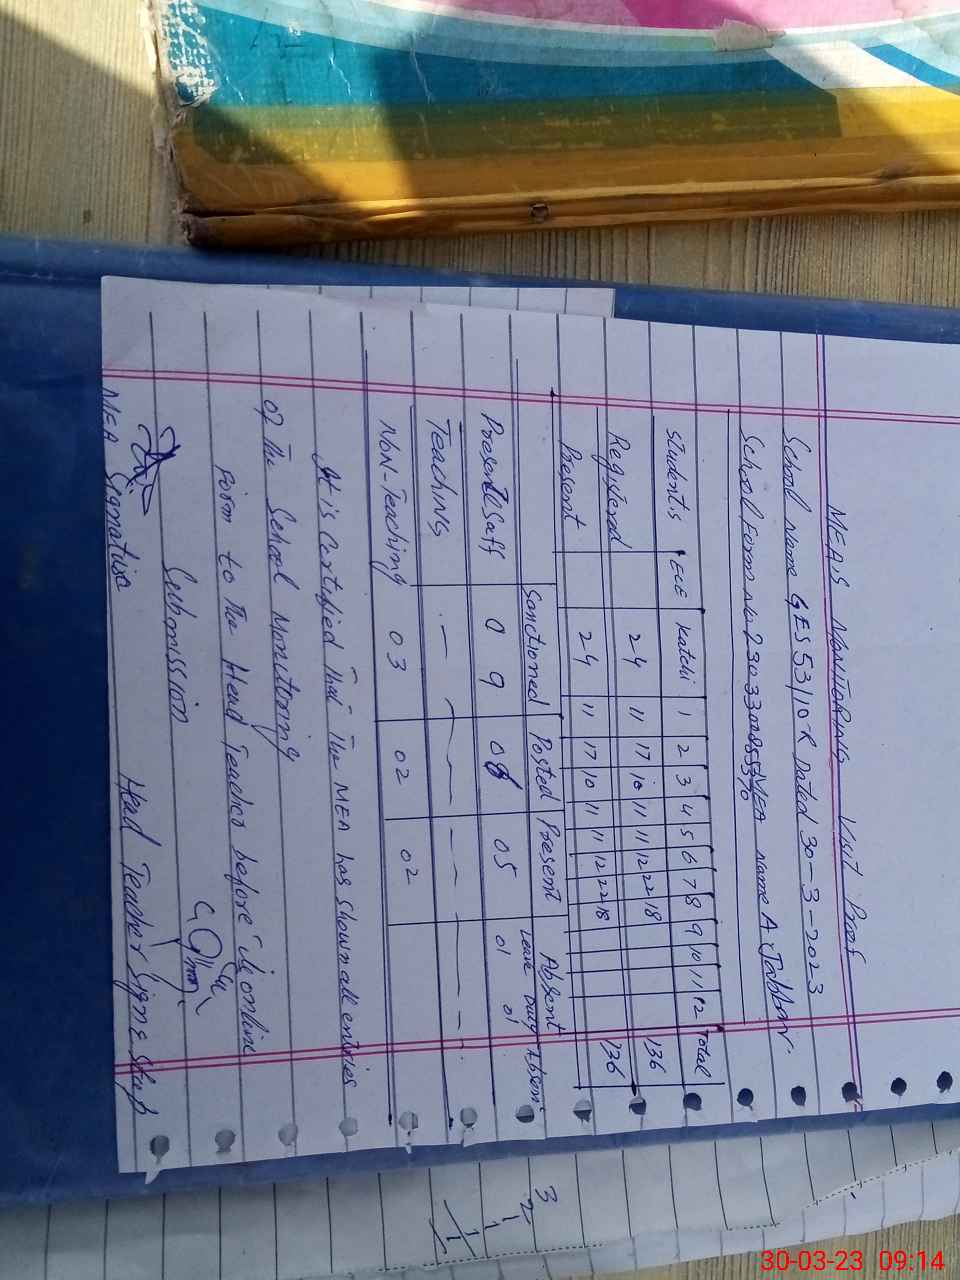 MEA'S MONITORING Visit Proof
School name GES 53/10-R Dated 30-3-2023
School Form No MEA name A. Jabbar.
Students ECE Katchi 1 2 3 4 5 6 7 8 9 10 11 12 Total
Registered 24 11 17 10 11 11 12 22 18 136
Present 24 11 17 10 11 11 12 22 18 136
Sanctioned Posted Present Absent
Leave Duty Absent
Present Saff 09 08 05 01 01
Teaching
Non-Teaching 03 02 02
It is certified that The MEA has shown all entries
of the School Monitoring
Form to the Head Teacher before its online
Submission
MEA Signature Head Teacher Signe Stup
3
2
1
30-03-23 09:14